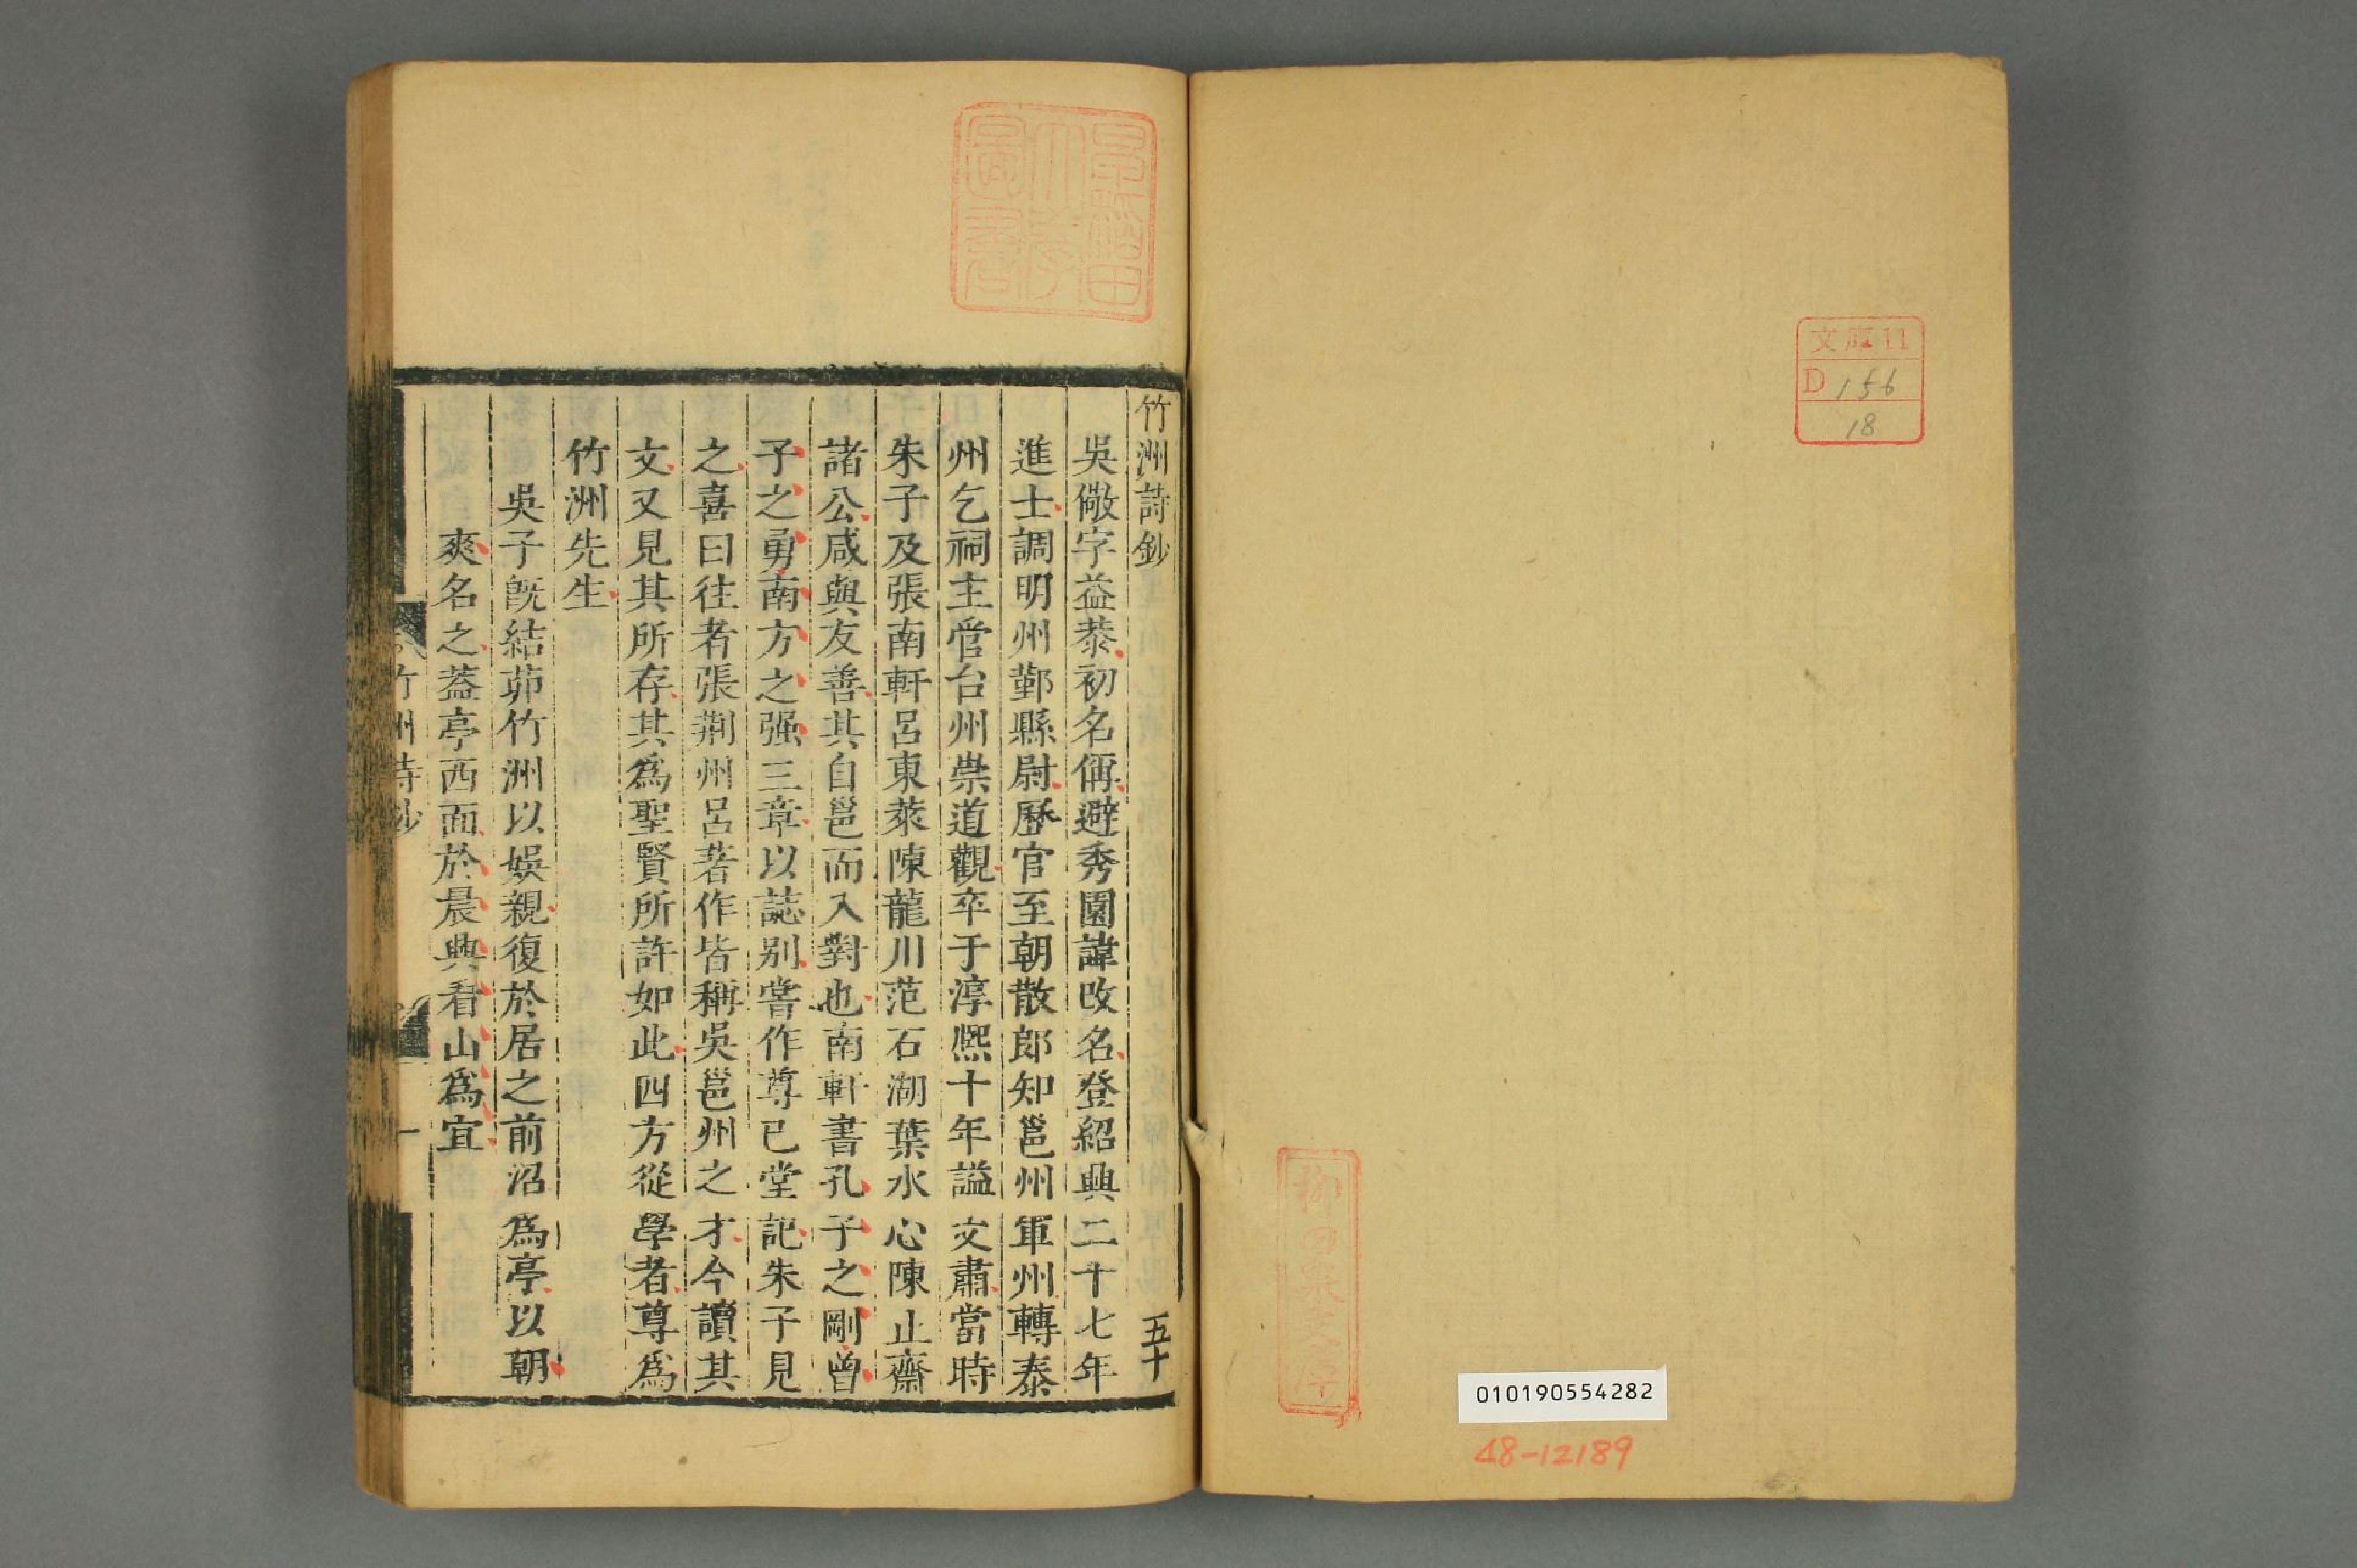 文庫11
D 156
18
010190554282
48-12189
早稲田
大學
圖書
竹洲詩鈔
五十
吳儆字益恭初名偁避秀園諱改名登紹興二十七年
進士調明州鄞縣尉歷官至朝散郎知邕州軍州轉泰
州乞祠主管台州崇道觀卒于淳熙十年謚文肅當時
朱子及張南軒呂東萊陳龍川范石湖葉水心陳止齋
諸公咸與友善其自邕而入對也南軒書孔子之剛曾
子之勇南方之强三章以誌别嘗作尊己堂記朱子見
之喜曰往者張荆州呂著作皆稱吳邕州之才今讀其
文又見其所存其爲聖賢所許如此四方從學者尊爲
竹洲先生
吳子旣結茆竹洲以娛親復於居之前沼爲亭以朝
爽名之葢亭西面於晨興看山爲宜
竹洲詩鈔
一